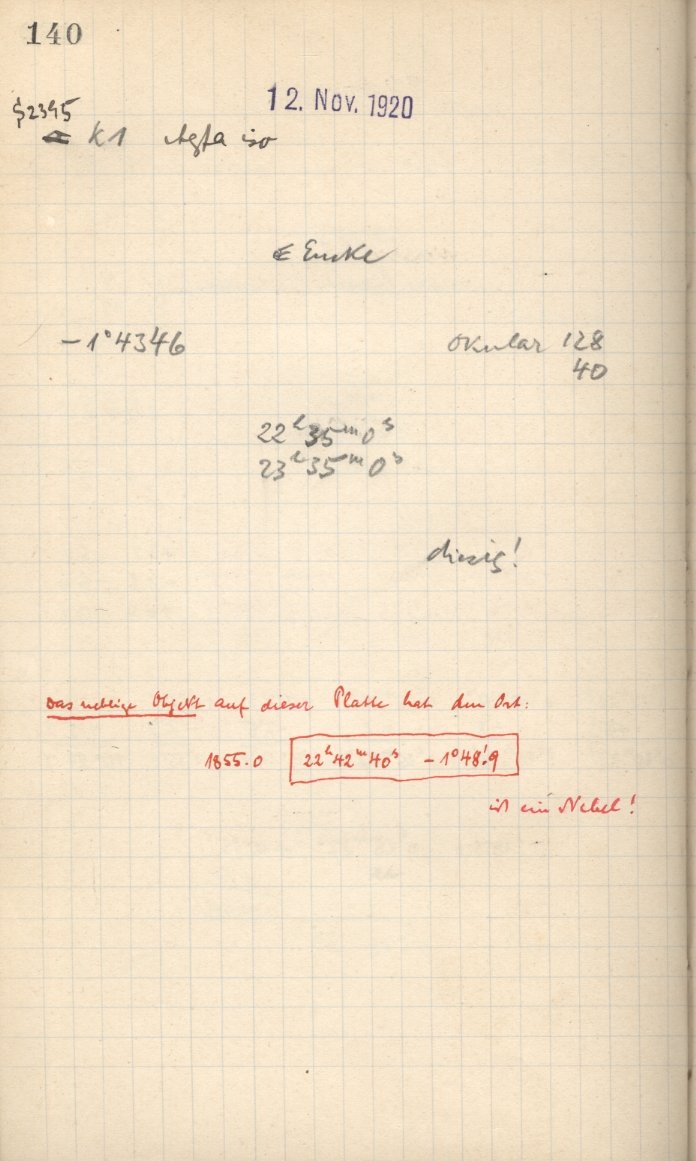 140
12. Nov. 1920
§2345
K1 Agfa iso
Encke
-1°4346 Okular 128
40
22ʰ35ᵐ0ˢ
23ʰ35ᵐ0ˢ
diesig!
Das neblige Objekt auf dieser Platte hat den Ort:
1855.0 22ʰ42ᵐ40ˢ -1°48!9
ist ein Nebel!